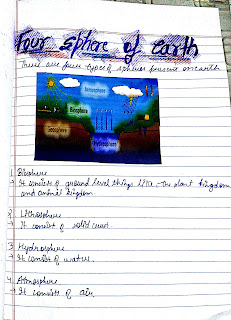 Four sphere of Earth
There are four types of spheres present on earth
Atmosphere
Biosphere
Geosphere
Hydrosphere
1 Biosphere
→ It consists of ground level things like - the plant kingdom
and animal kingdom.
2 Lithosphere
→ It consist of solid crust.
3 Hydrosphere
→ It consist of water.
4 Atmosphere
→ It consists of air